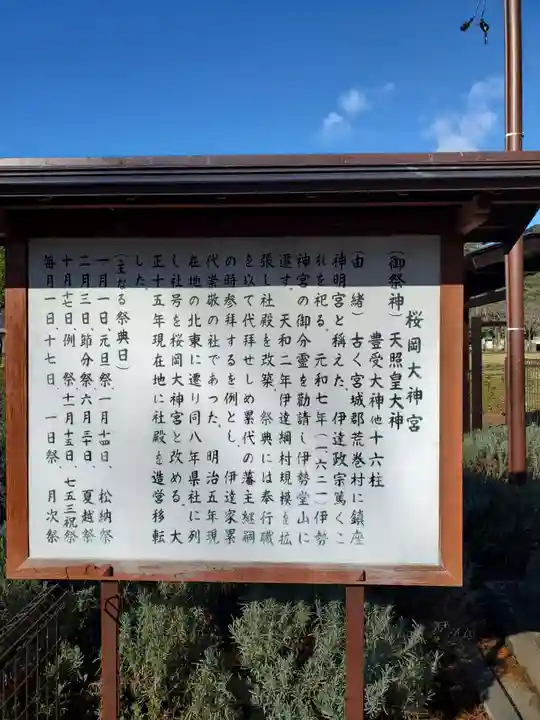 桜岡大神宮
(御祭神)天照皇大神
豊受大神他十六柱
(由　緒)古く宮城郡荒巻村に鎮座
神明宮と称えた、伊達政宗篤くこ
れを祀る、元和七年(一六二一伊勢
神宮の御分霊を勧請し伊勢堂山に
遷す、天和二年伊達綱村規模を拡
張し社殿を改築、祭典には奉行職
を以て代拝せしめ累代の藩主継嗣
の時参拝するを例とし、伊達家累
代崇敬の社であった、明治五年現
在地の北東に遷り同八年県社に列
し社号を桜岡大神宮と改める、大
正十五年現在地に社殿を造営移転
した、
(主なる祭典日)
一月一日、元旦祭、一月十四日、松納祭
二月三日、節分祭、六月三十日、夏越祭
十月十七日、例　祭、十一月十五日、七五三祝祭
毎月一日、十七日、一日祭、月次祭